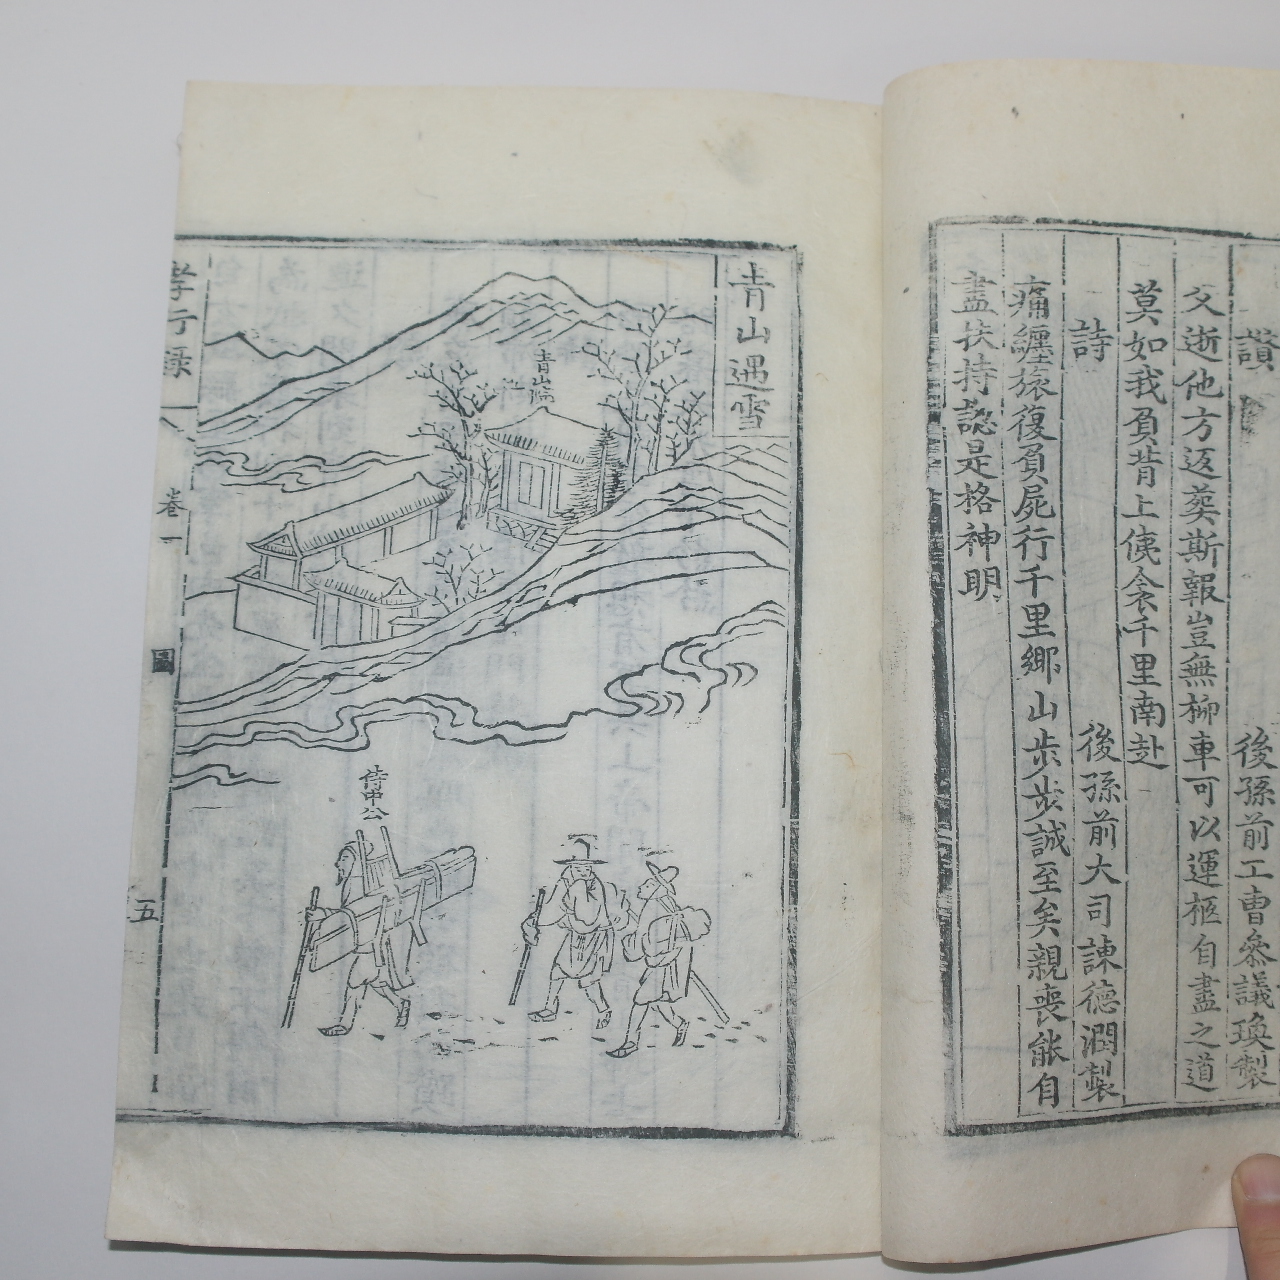 讚
後孫前工曹參議瑍製
父逝他方返葬斯報豈無柳車可以運柩自盡之道
莫如我負背上俵衾千里南赴
詩
後孫前大司諫德潤製
痛纏旅復負屍行千里鄉山步步誠至矣親喪能自
盡扶持認是格神明
青山遇雪
青山
侍中公
孝行錄
卷一
圖
五